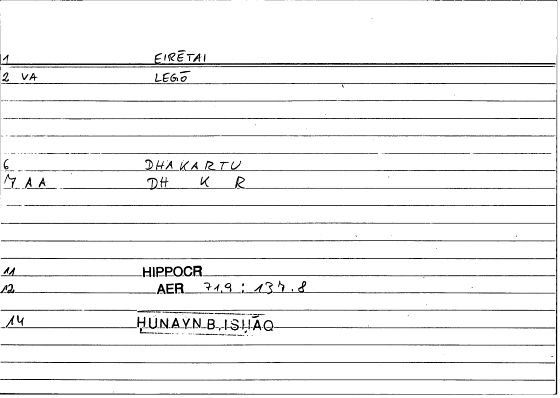 1 EIRĒTAI
2 VA LEGŌ
6 DHAKARTU
7 AA DH K R
11 HIPPOCR
12 AER 71.9 : 137.8
14 ḤUNAYN B. ISḤĀQ